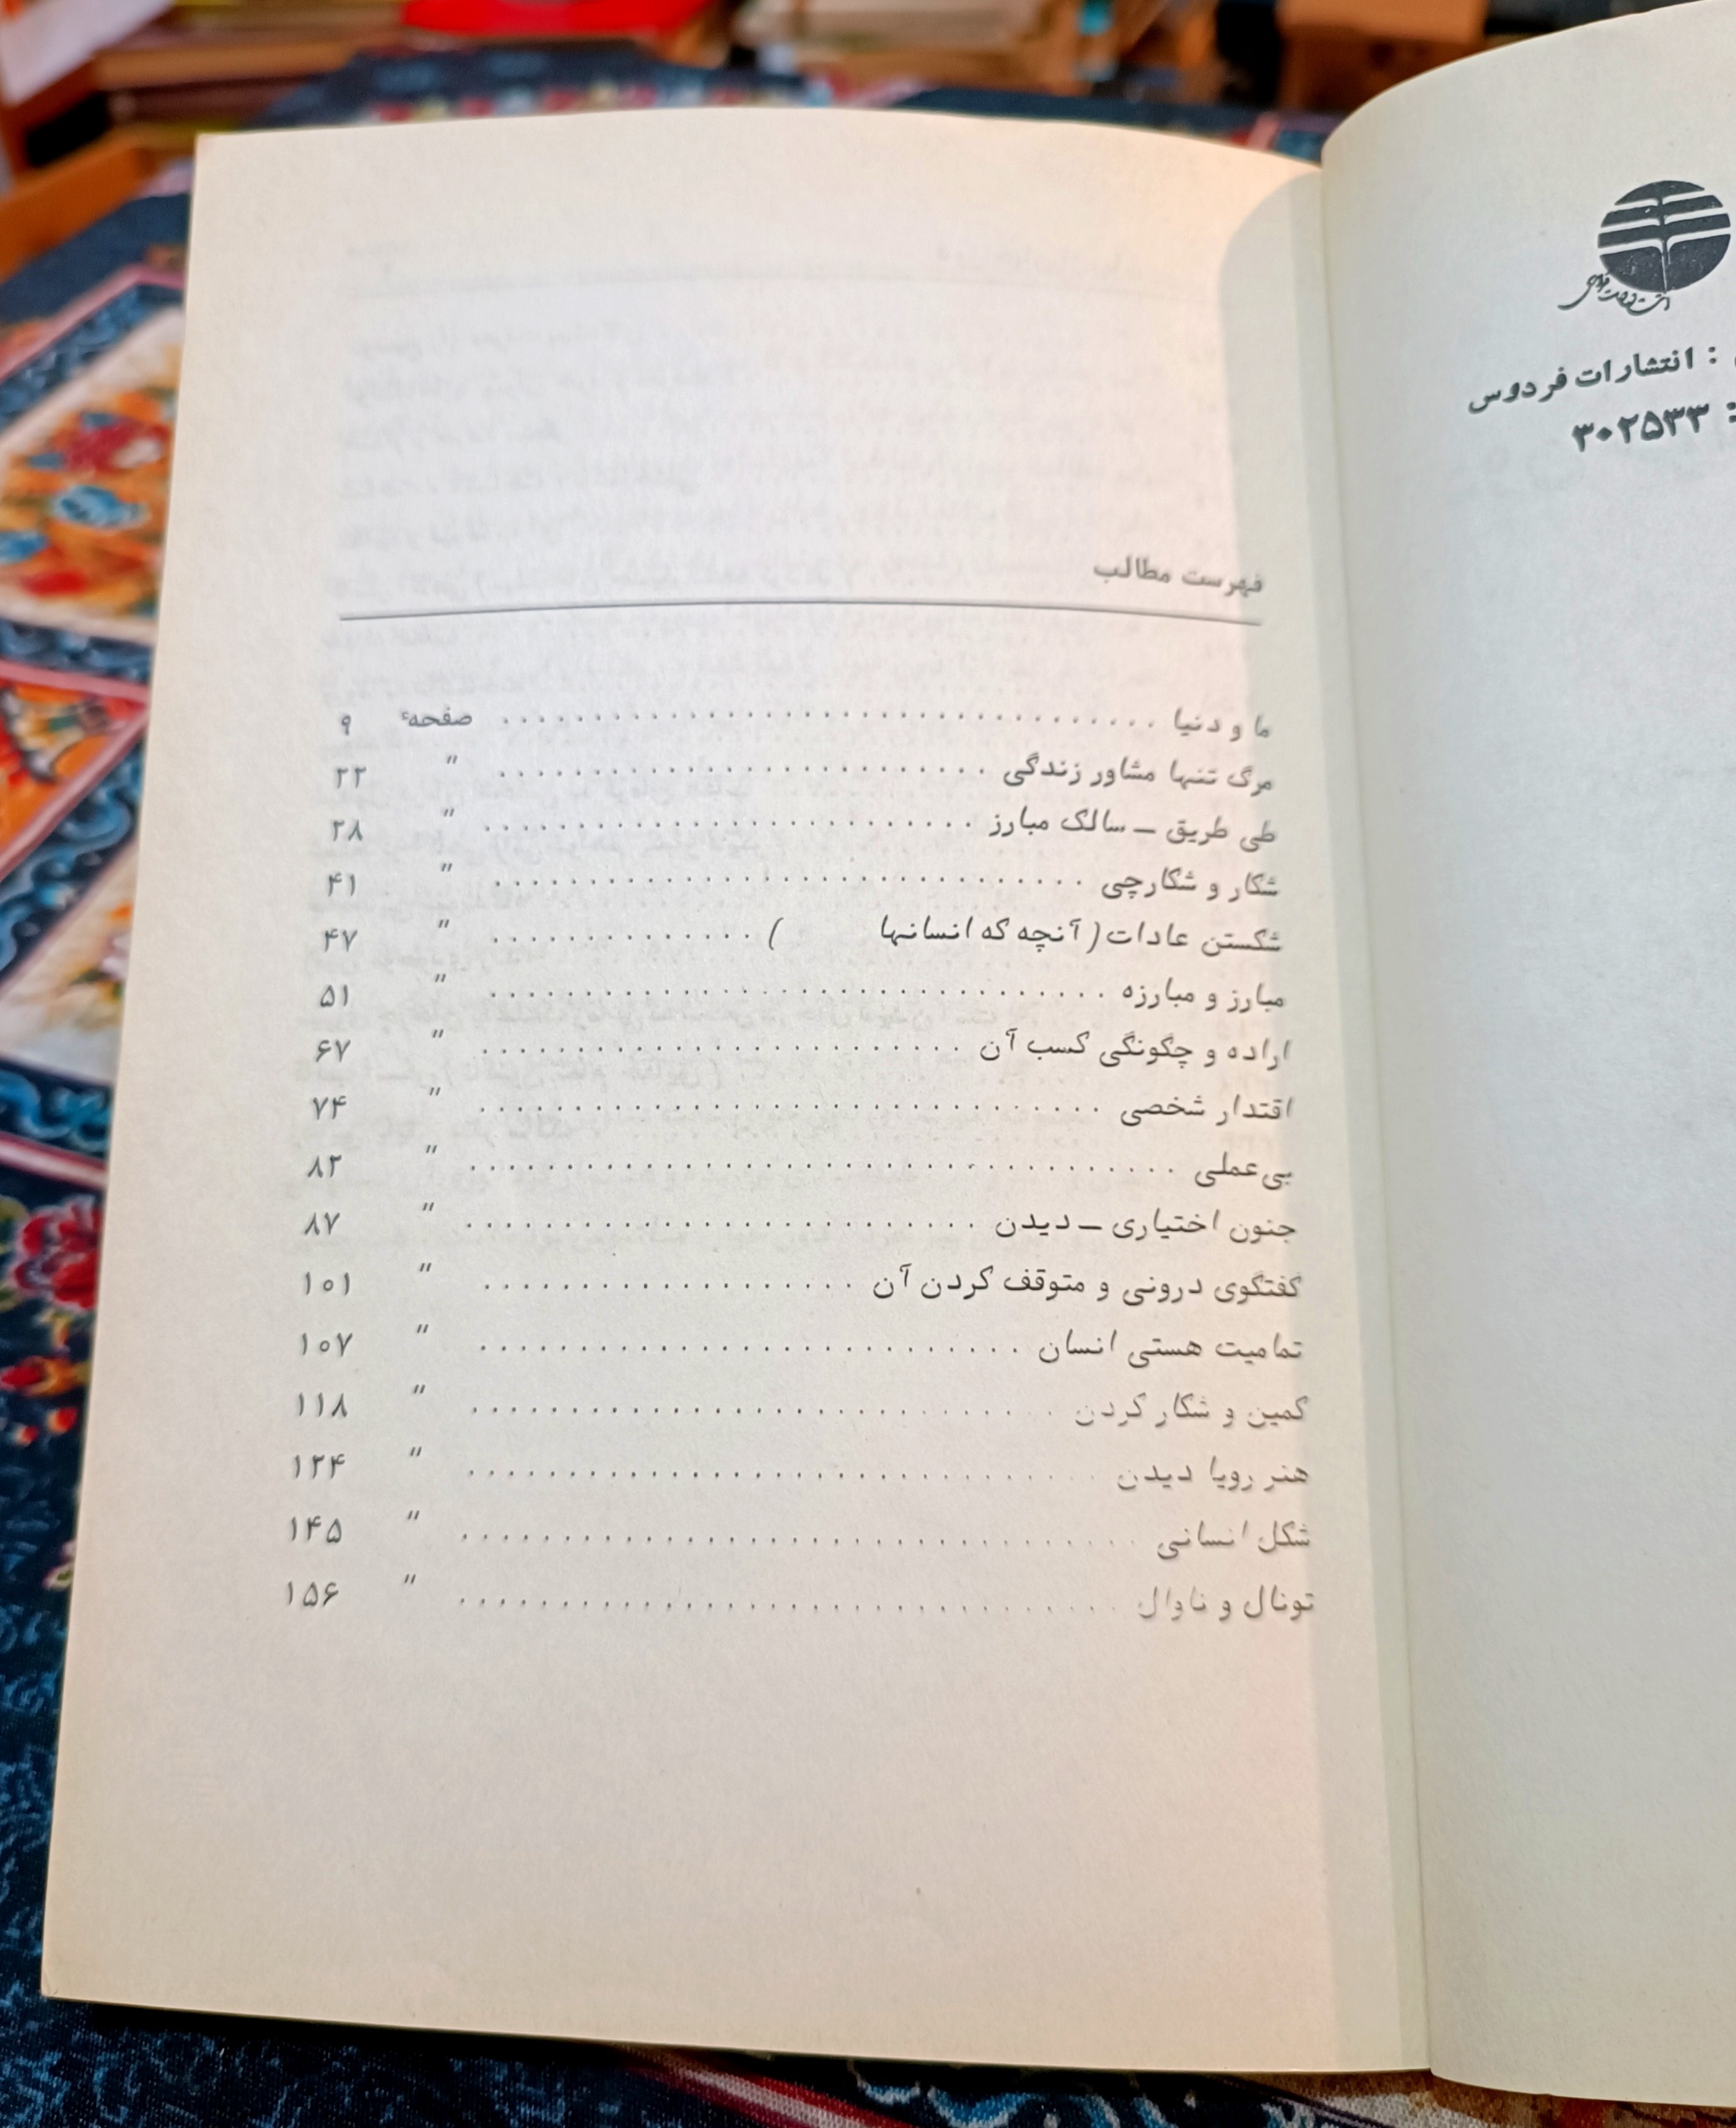 انتشارات فردوس
: ۳۰۲۵۳۳
فهرست مطالب
ما و دنیا . . . . . . . . . . . . . . . . . . . . . . . . . . . . . . . . . صفحهٔ ۹
مرگ تنها مشاور زندگی . . . . . . . . . . . . . . . . . . . . . . . . . " ۲۲
طی طریق ــ سالک مبارز . . . . . . . . . . . . . . . . . . . . . . . . . " ۲۸
شکار و شکارچی . . . . . . . . . . . . . . . . . . . . . . . . . . . . . . " ۴۱
شکستن عادات ( آنچه که انسانها ) . . . . . . . . . . . . . . " ۴۷
مبارز و مبارزه . . . . . . . . . . . . . . . . . . . . . . . . . . . . . . . " ۵۱
اراده و چگونگی کسب آن . . . . . . . . . . . . . . . . . . . . . . . . . " ۶۷
اقتدار شخصی . . . . . . . . . . . . . . . . . . . . . . . . . . . . . . . " ۷۴
بی‌عملی . . . . . . . . . . . . . . . . . . . . . . . . . . . . . . . . . . . " ۸۲
جنون اختیاری ــ دیدن . . . . . . . . . . . . . . . . . . . . . . . . . . " ۸۷
گفتگوی درونی و متوقف کردن آن . . . . . . . . . . . . . . . . . . . " ۱۰۱
تمامیت هستی انسان . . . . . . . . . . . . . . . . . . . . . . . . . . . " ۱۰۷
کمین و شکار کردن . . . . . . . . . . . . . . . . . . . . . . . . . . . . . " ۱۱۸
هنر رویا دیدن . . . . . . . . . . . . . . . . . . . . . . . . . . . . . . . " ۱۲۴
شکل انسانی . . . . . . . . . . . . . . . . . . . . . . . . . . . . . . . . " ۱۴۵
تونال و ناوال . . . . . . . . . . . . . . . . . . . . . . . . . . . . . . . . " ۱۵۶